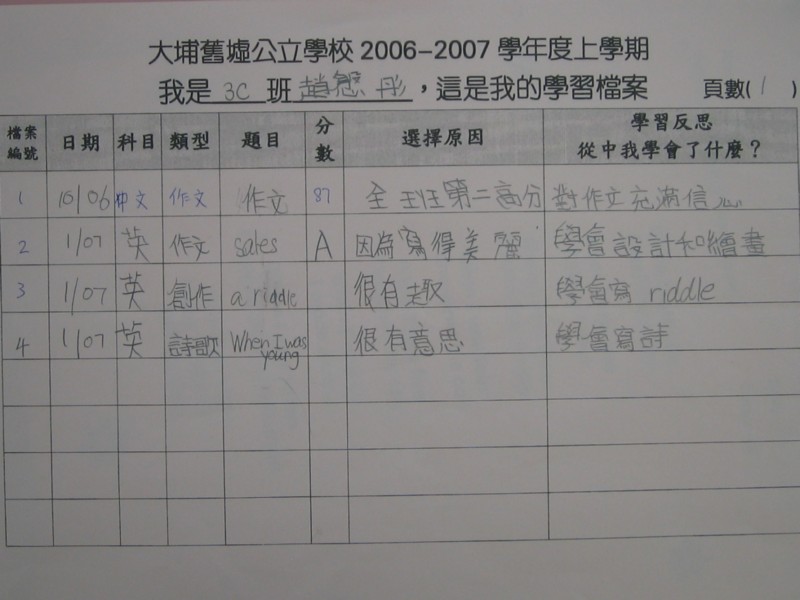 大埔舊墟公立學校 2006-2007 學年度上學期
我是 3C 班 趙慇彤，這是我的學習檔案 頁數( 1 )
檔案編號 日期 科目 類型 題目 分數 選擇原因 學習反思 從中我學會了什麼？
1 10/06 中文 作文 作文 87 全班第二高分 對作文充滿信心
2 1/07 英 作文 sales A 因為寫得美麗 學會設計和繪畫
3 1/07 英 創作 a riddle 很有趣 學會寫 riddle
4 1/07 英 詩歌 When I was young 很有意思 學會寫詩